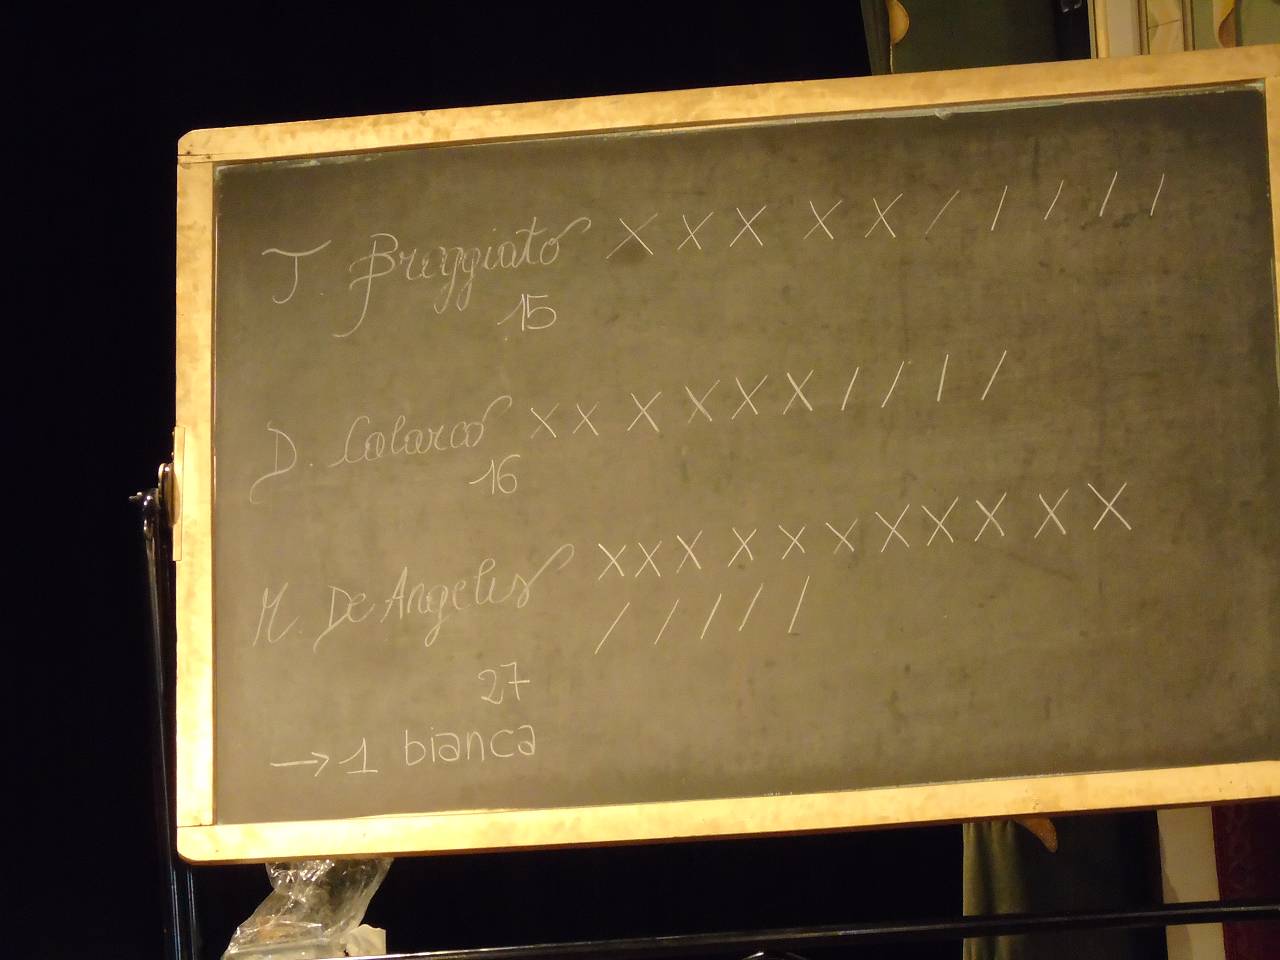 T. Breggiato X X X X X / / / / /
15
D. Calarco X X X X X X / / / /
16
M. De Angelis X X X X X X X X X X X
/ / / / /
27
→ 1 bianca